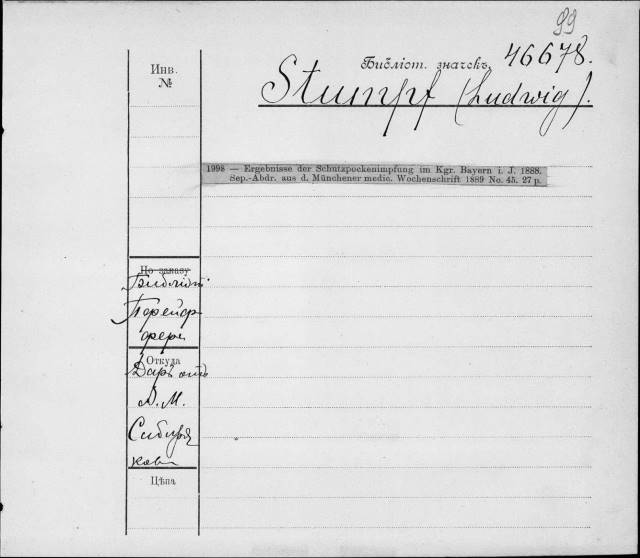 99
Библіот. значекъ 46678.
Инв.
№
Stumpf (Ludwig).
1998 — Ergebnisse der Schutzpockenimpfung im Kgr. Bayern i. J. 1888.
Sep.-Abdr. aus d. Münchener medic. Wochenschrift 1889 No. 45. 27 p.
По заказу
Библіот
Откуда
Даръ отъ
А. М.
Сибиря
кова
Цѣна